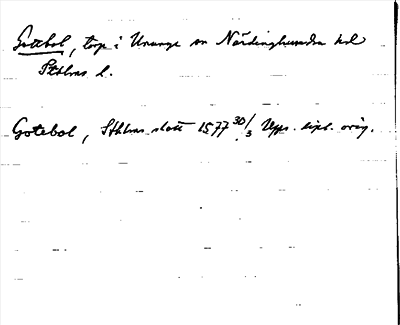 Gottebol, torp i Ununge sn Närdinghundra hd
Sthlms l.
Gotebol, Sthlms slott 1577 30/3 Upps. dipl. orig.